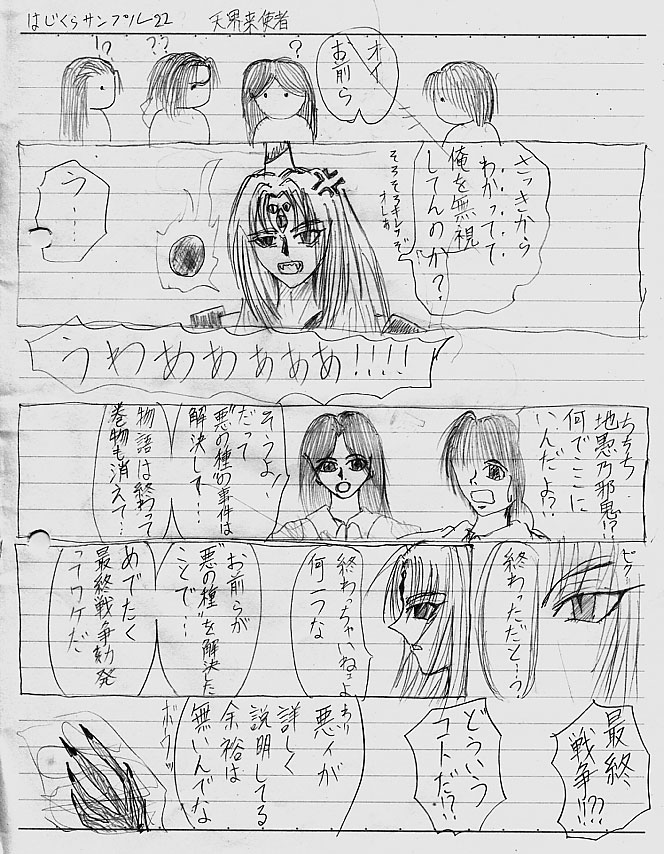 はじくらサンプル22
天界来使者
オイ
お前ら
?
??
!?
さっきから
わかってて
俺を無視
してんのか?
そろそろキレっぞ
オレあ
う…
うわああぁぁぁあ!!!!
ちちち
地愚乃邪鬼!?
何でここに
いんだよ?!
そうよ!
だって
"悪の種"の事件は
解決して…
物語は終わって
巻物も消えて…
ピク
終わっただと…?
終わっちゃいねェよ
何一つな
お前らが
"悪の種"を解決した
ことで…
めでたく
最終戦争勃発
ってワケだ
最終
戦争!!??
どういう
コトだ!?
わりィ
悪ィが
詳しく
説明してる
余裕は
無いんでな
ボウッ